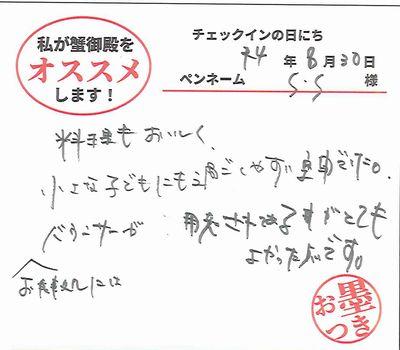 私が蟹御殿を
オススメ
します！
チェックインの日にち
R4 年 8 月 30 日
ペンネーム S.S 様
料理もおいしく、
小さな子どもにも過ごしやすい
バウンサーが 用意され
とても
よかったです。
お食事処には
お墨つき